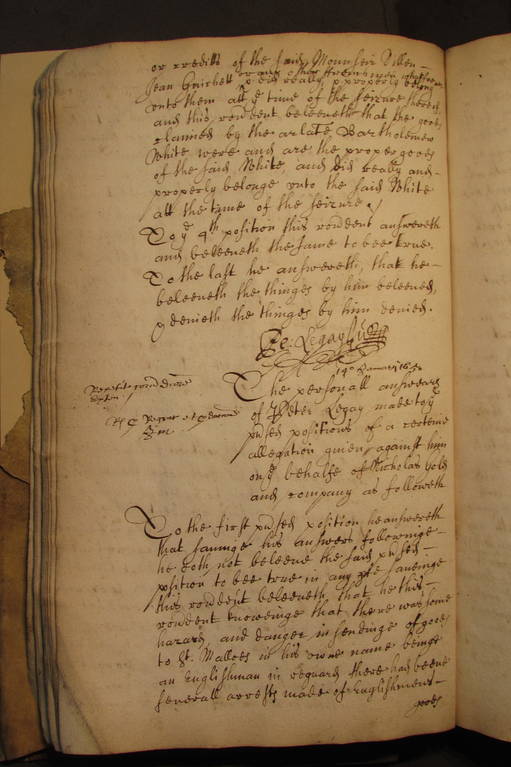 or credits of the said Mounsier Dillen
Jean Guichett or any other frenchmen whatsoever
and did really & properly belong
unto them att ye time of the seizure thereof
and this rendent beleeveth that the goods
claimed by the arlate Bartholemew
White were and are the proper goods
of the said White, and did really and
properly belonge unto the said White
att the tyme of the seizure./
To ye 4th position this rendent answereth
and beleeveth the same to bee true.
To the last he answereth, that he
beleeveth the thinges by him beleeved,
& denieth the thinges by him denied.
Pe: Legay
14o January
The personall answeares
of Peter Legay made to ye
pnsed positions of a certeine
allegation given against him
on ye behalfe of Nicholas
and company as followeth
To the first pnsed position he answereth
that saveinge his answers followinge
he doth not beleeve the said pnsed
position to bee true in any pte saveinge
this rendent beleeveth that he this
rendent knoweinge that there was some
hazard and danger in sendinge of goods
to St. Malloes in his owne name beinge
an Englishman in reguard there had beene
severall arrests made of Englishmens
goods